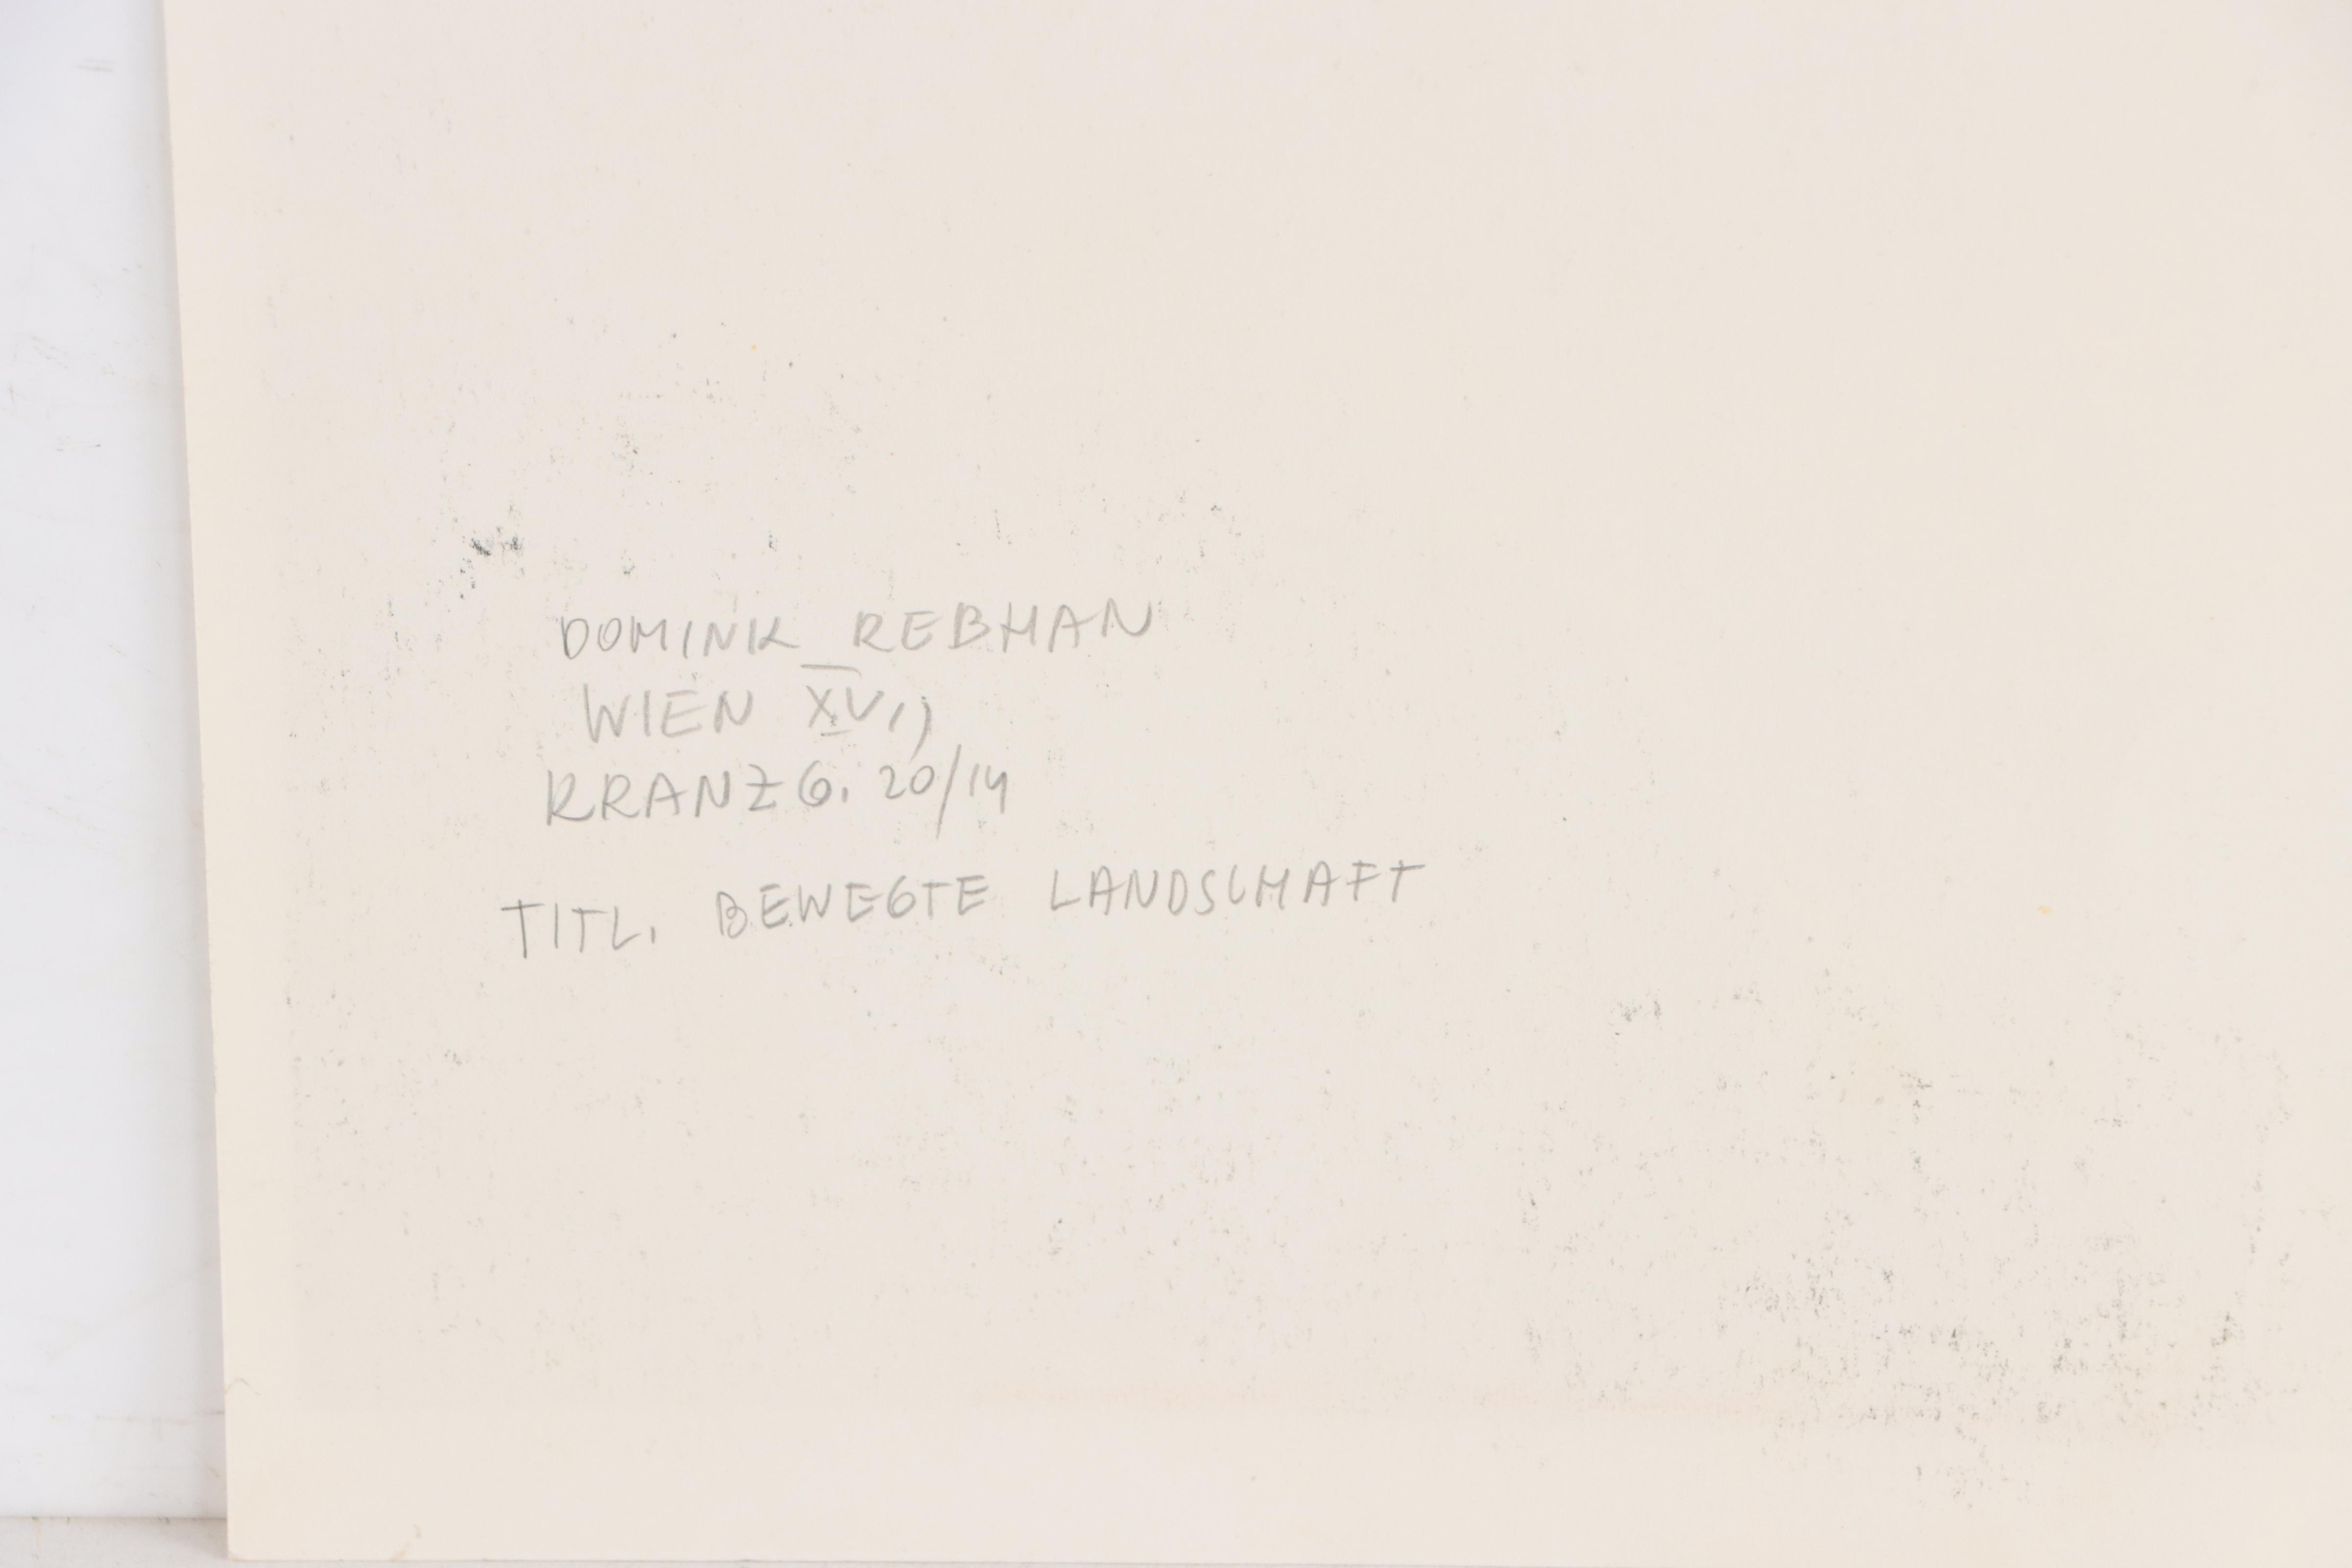 DOMINK REBMAN
WIEN XV,
KRANZG. 20/14
TITL. BEWEGTE LANDSCHAFT